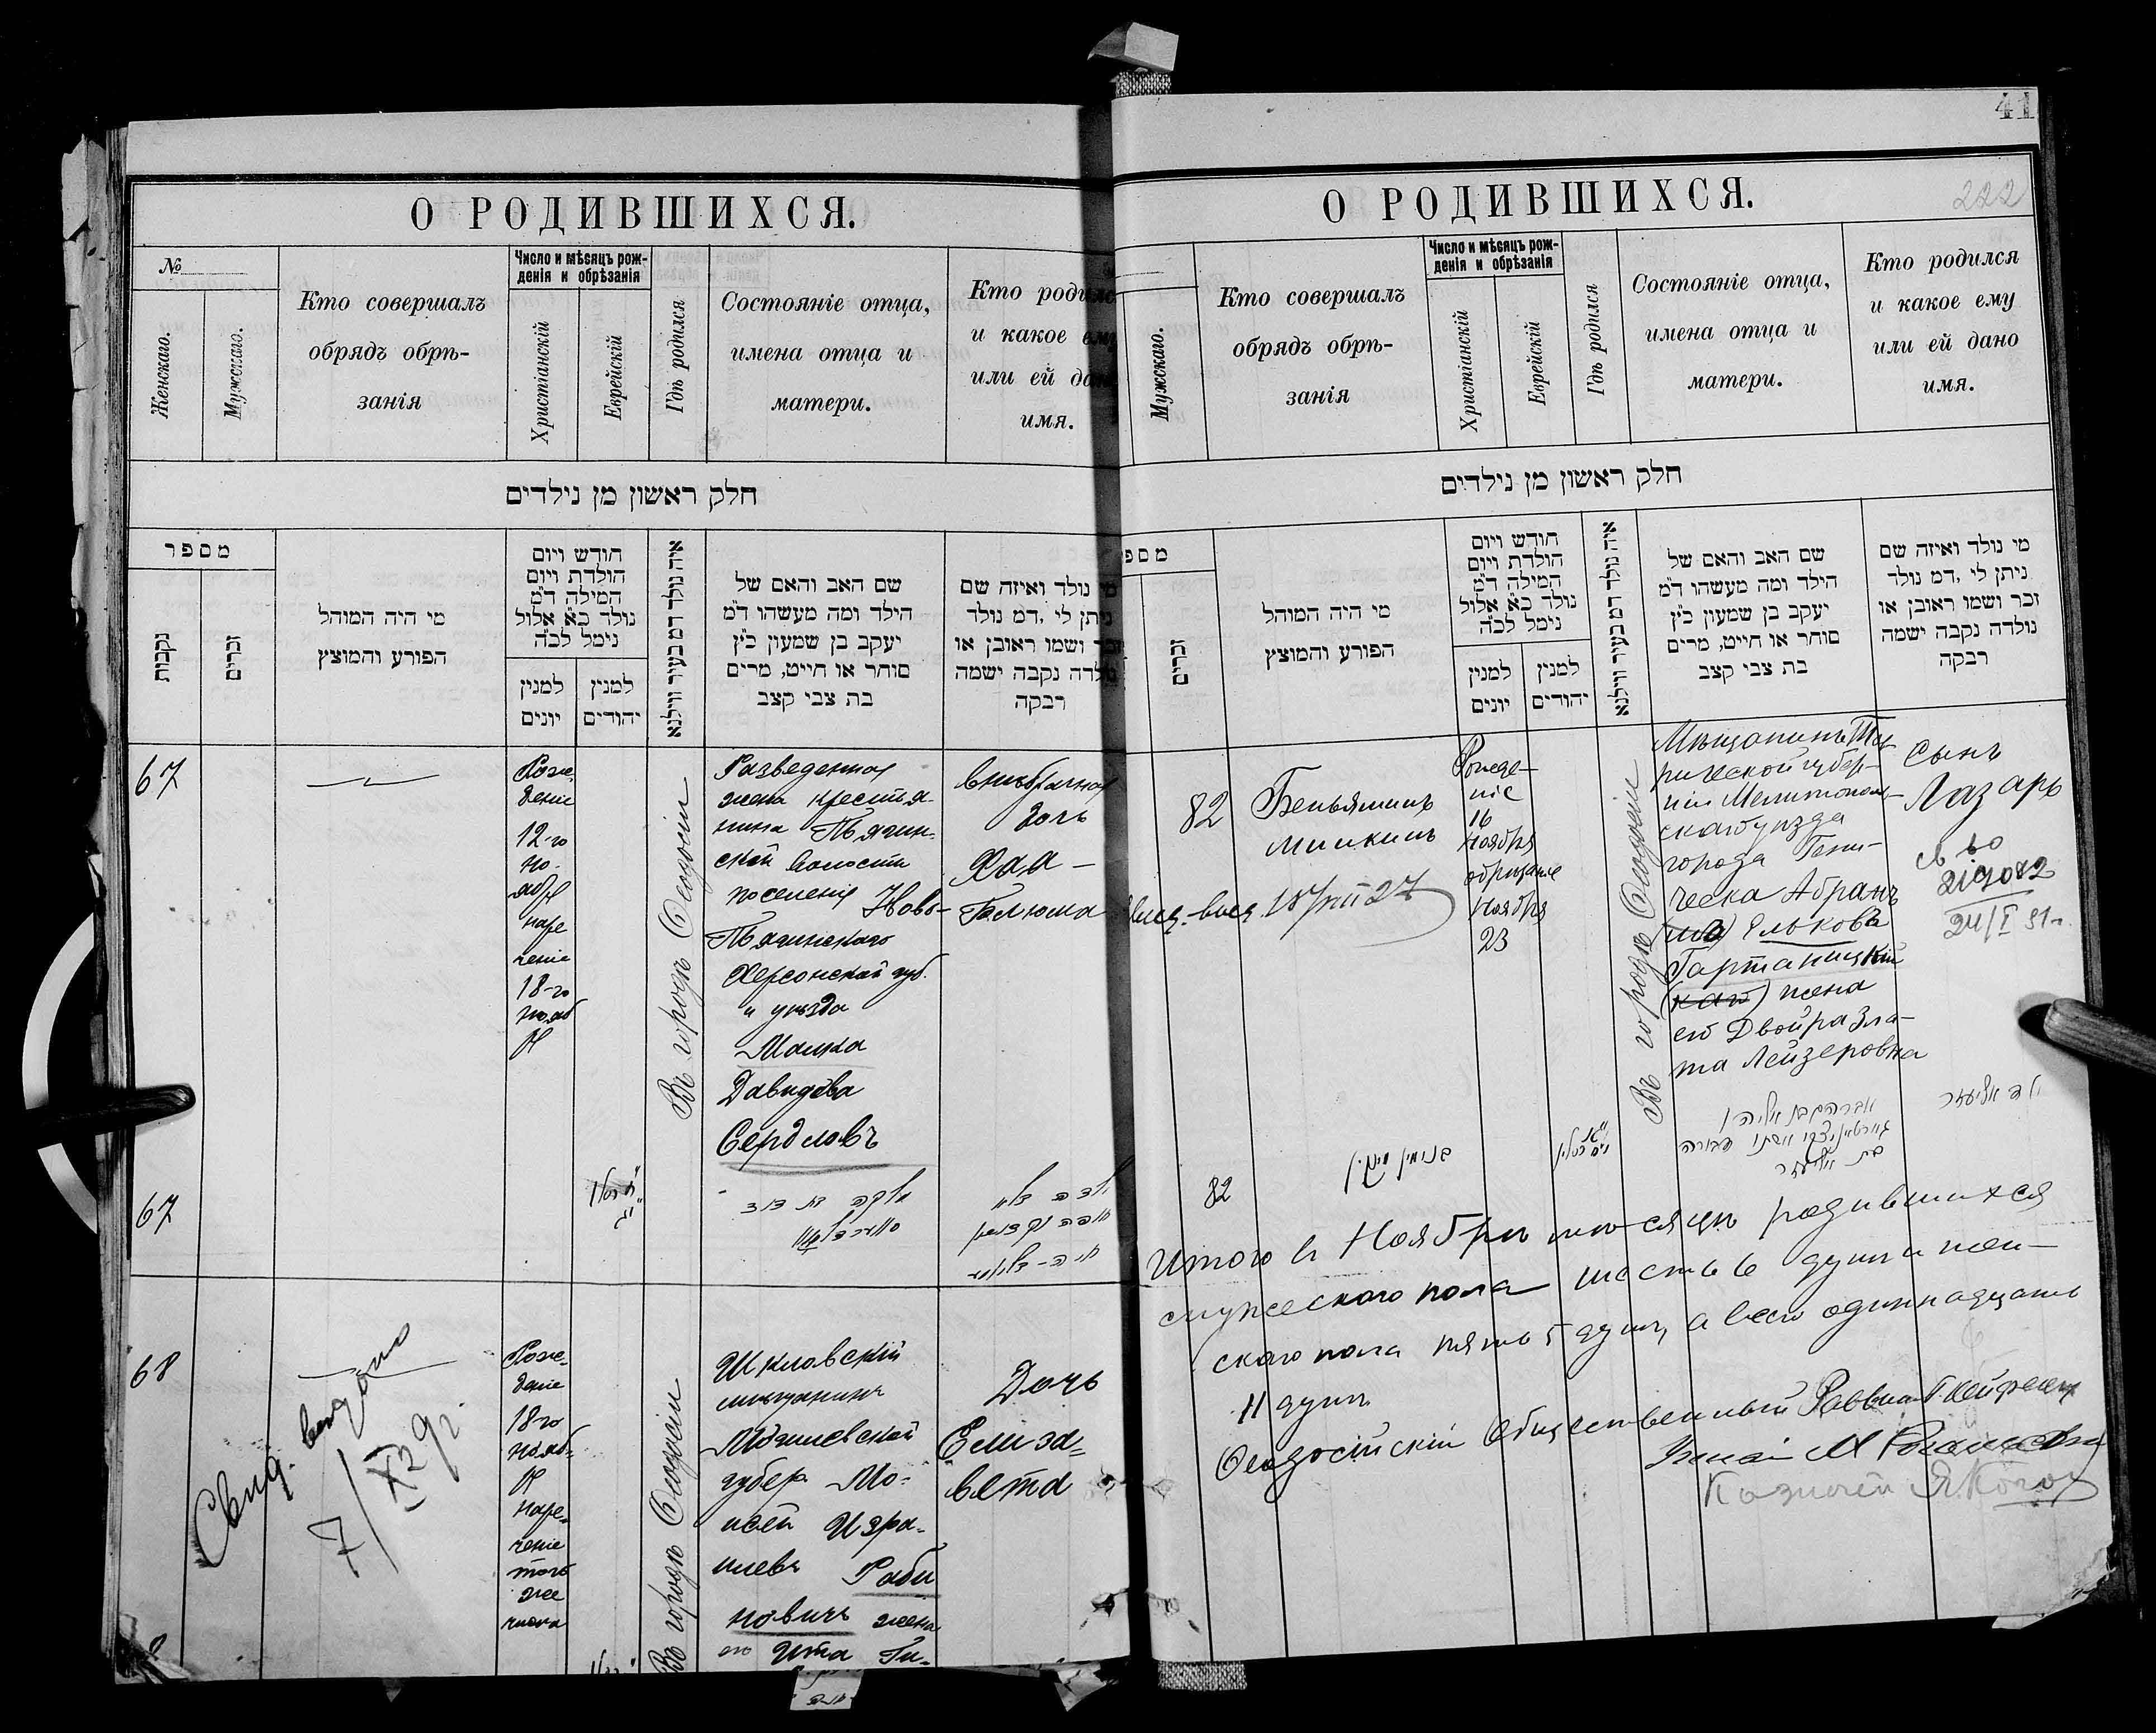 О РОДИВШИХСЯ.
№
Женскаго.
Мужскаго.
Кто совершалъ
обрядъ обрѣ-
занія
Число и мѣсяцъ рож-
денія и обрѣзанія
Христіанскій
Еврейскій
Гдѣ родился
Состояніе отца,
имена отца и
матери.
Кто родился
и какое ему
или ей дано
имя.
חלק ראשון מן נילדים
מספר
נקבות
זכרים
מי היה המוהל
הפורע והמוצץ
חודש ויום
הולדת ויום
המילה ד״מ
נולד כ״א אלול
נימל לכ״ה
למנין
יונים
למנין
יהודים
איה נולד דמ בעיר ווילנא
שם האב והאם של
הילד ומה מעשהו ד״מ
יעקב בן שמעון כ״ץ
סוחר או חייט, מרים
בת צבי קצב
מי נולד ואיזה שם
ניתן לי ,דמ נולד
זכר ושמו ראובן או
נולדה נקבה ישמה
רבקה
67
Рож-
деніе
12-го
но-
ября
наре
ченіе
18-го
нояб
я
Въ городѣ Ѳеодосіи
Разведенная
жена крестья-
нина
ской волости
поселенія Ново-
Херсонской губ.
и уѣзда
Малка
Давидова
Сердловъ
внѣбрачная
дочь
Хая-
67
68
Свид. выдано
7/XI 29 г.
Рож-
деніе
18-го
нояб-
я
наре-
ченіе
того
же
числа
Въ городѣ Ѳеодосіи
Шкловскій
мѣщанинъ
Могилевской
губер. Мо-
исей Изра-
илевъ Раби
новичъ жена
его Ита Ги-
Дочь
Елиза-
вета
41
222
О РОДИВШИХСЯ.
Мужскаго.
Кто совершалъ
обрядъ обрѣ-
занія
Число и мѣсяцъ рож-
денія и обрѣзанія
Христіанскій
Еврейскій
Гдѣ родился
Состояніе отца,
имена отца и
матери.
Кто родился
и какое ему
или ей дано
имя.
חלק ראשון מן נילדים
מספ
זכרים
מי היה המוהל
הפורע והמוצץ
חודש ויום
הולדת ויום
המילה ד״מ
נולד כ״א אלול
נימל לכ״ה
למנין
יונים
למנין
יהודים
איה נולד דמ בעיר ווילנא
שם האב והאם של
הילד ומה מעשהו ד״מ
יעקב בן שמעון כ״ץ
סוחר או חייט, מרים
בת צבי קצב
מי נולד ואיזה שם
ניתן לי ,דמ נולד
זכר ושמו ראובן או
נולדה נקבה ישמה
רבקה
82
Беньяминъ
Мишкинъ
Рожде-
ніе
16
Ноября
обрѣзаніе
Ноября
23
Въ городѣ Ѳеодосіи
Мѣщанинъ Тав
рической губер-
ніи Мелитополь-
скаго уѣзда
города Гени-
ческа Абрамъ
Ельковъ
Гартаницкій
(каго) жена
его Двойра Зла-
та Лейзеровна
Сынъ
Лазарь
св-во
24/I 31 г.
82
בנימין מישקין
אברהם בן אליהו
גארטאניצקי אשתו דבורה
בת אליעזר
ילד אליעזר
Итого въ Ноябрѣ мѣсяцѣ родившихся
мужескаго пола шесть 6 душъ и жен-
скаго пола пять 5 душъ, а всего одиннадцать
11 душъ.
Ѳеодосійскій Общественный Раввинъ
Казначей